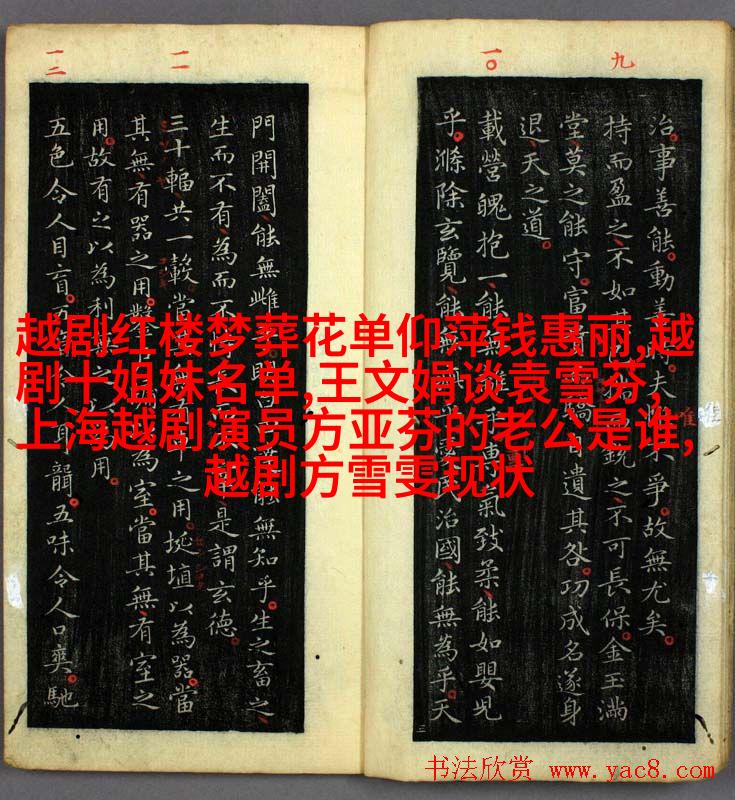 九
一〇
一一
一二
治事善能動善時夫唯不爭故無尤矣
持而盈之不如其銳之不可長保金玉滿
堂莫之能守富貴自遺其咎功成名遂身
退天之道
載營魄抱一能無乎專氣致柔能如嬰兒
乎滌除玄覽能無治國能無為乎天
門開闔能無雌能無知乎生之畜之
生而不有為而不是謂玄德
三十輻共一轂當之用埏埴以為器當
其無有器之用鑿為室當其無有室之
用故有之以為利用
五色令人目盲人耳聾五味令人口爽馳
唯
越剧红楼梦葬花单仰萍钱惠丽,越
剧十姐妹名单,王文娟谈袁雪芬,
上海越剧演员方亚芬的老公是谁,
越剧方雪雯现状
书法欣赏 www.yac8.com